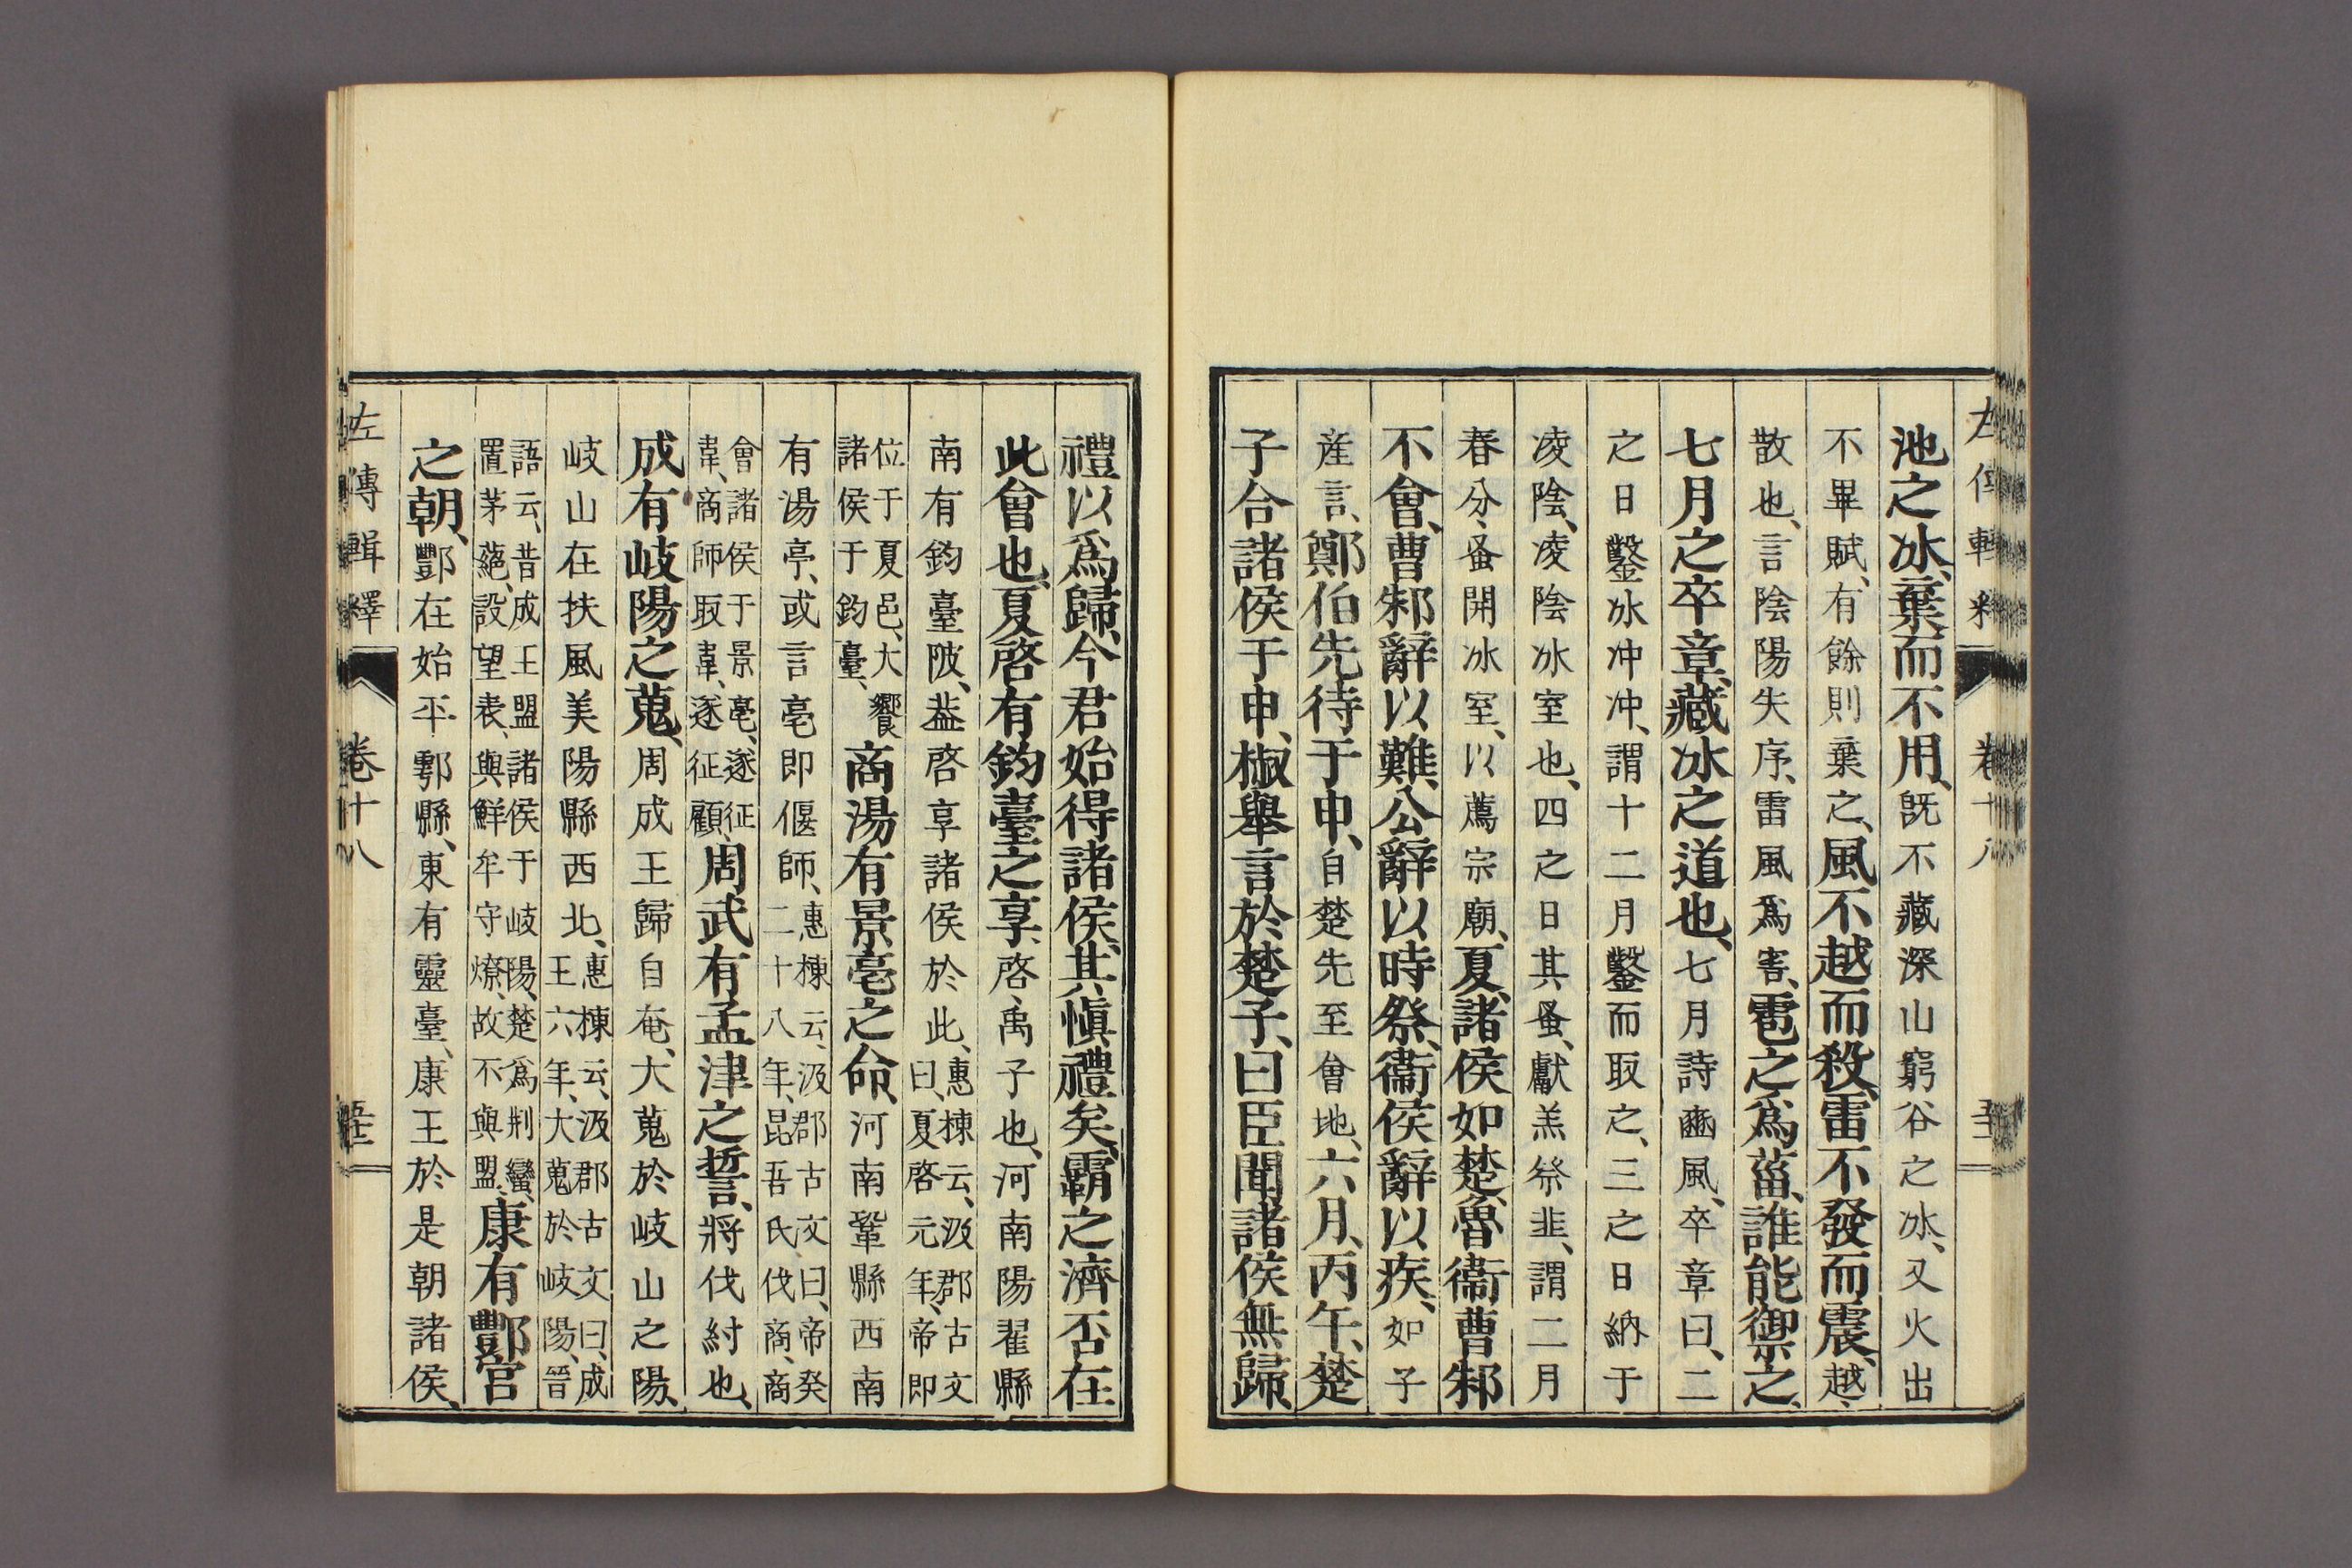 池之冰、棄而不用、既不藏深山窮谷之冰、又火出
不畢賦、有餘則棄之、風不越而殺、雷不發而震、越、
散也、言陰陽失序、雷風爲害、雹之爲菑、誰能禦之、
七月之卒章、藏冰之道也、七月詩豳風、卒章曰、二
之日鑿冰冲冲、謂十二月鑿而取之、三之日納于
凌陰、凌陰冰室也、四之日其蚤、獻羔祭韭、謂二月
春分、蚤開冰室、以薦宗廟、夏、諸侯如楚、魯衞曹邾
不會、曹邾辭以難、公辭以時祭、衞侯辭以疾、如子
產言、鄭伯先待于申、自楚先至會地、六月、丙午、楚
子合諸侯于申、椒舉言於楚子、曰臣聞諸侯無歸、
禮以爲歸、今君始得諸侯、其愼禮矣、霸之濟否在
此會也、夏啓有鈞臺之享、啓、禹子也、河南陽翟縣
南有鈞臺陂、葢啓享諸侯於此、惠棟云、汲郡古文
曰、夏啓元年、帝即
位于夏邑、大饗
諸侯于鈞臺、商湯有景亳之命、河南鞏縣西南
有湯亭、或言亳即偃師、惠棟云、汲郡古文曰、帝癸
二十八年、昆吾氏伐商、商
會諸侯于景亳、遂征
韋、商師取韋、遂征顧、周武有孟津之誓、將伐紂也、
成有岐陽之蒐、周成王歸自奄、大蒐於岐山之陽、
岐山在扶風美陽縣西北、惠棟云、汲郡古文曰、成
王六年、大蒐於岐陽、晉
語云、昔成王盟諸侯于岐陽、楚爲荆蠻、
置茅蕝、設望表、與鮮牟守燎、故不與盟、康有酆宮
之朝、酆在始平鄠縣、東有靈臺、康王於是朝諸侯、
左傳輯釋
卷十八